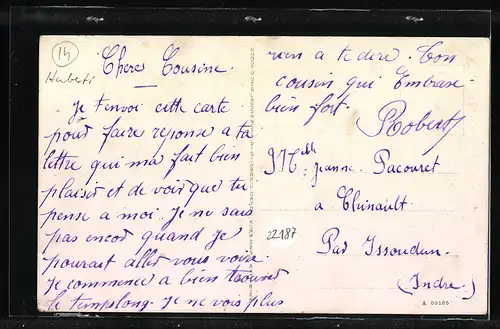 14
Herbert
Chere Cousine.
Je t'envoi cette carte
pour faire reponse a ta
lettre qui ma fait bien
plaisir et de voir que tu
pense a moi. Je ne sais
pas encor quand je
pourait aller vous voir.
je commence a bien trouver
le temps long. Je ne vois plus
rien a te dire. Ton
cousin qui t'Embrase
bien fort.
Robert
Melle Jeanne Pacouret
a Thinault
22187
Par Issoudun.
(Indre.)
A 09165